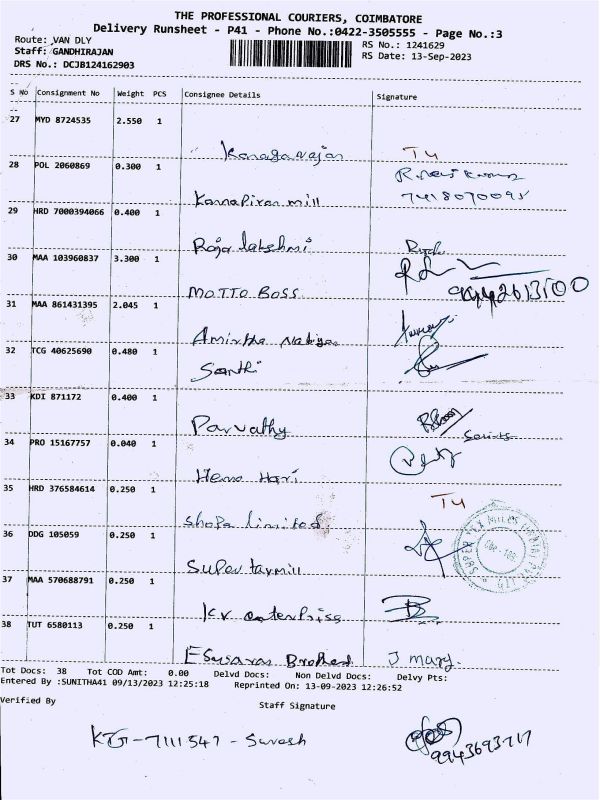 THE PROFESSIONAL COURIERS, COIMBATORE
Delivery Runsheet - P41 - Phone No.:0422-3505555 - Page No.:3
Route: VAN DLY
RS No.: 1241629
Staff: GANDHIRAJAN
RS Date: 13-Sep-2023
DRS No.: DCJB124162903
S No Consignment No Weight PCS Consignee Details Signature
27 MYD 8724535 2.550 1
Kanagarajan T4
28 POL 2060869 0.300 1
Kannapiran mill 7418070095
29 HRD 7000394066 0.400 1
Raja lakshmi
30 MAA 103960837 3.300 1
MOTTO BOSS 9442613500
31 MAA 861431395 2.045 1
Amirtha
32 TCG 40625690 0.480 1
Santhi
33 KDI 871172 0.400 1
Parvathy
34 PRO 15167757 0.040 1
Hema Hari
35 HRD 376584614 0.250 1
Shopa limited T4
36 DDG 105059 0.250 1
Super taxmill
37 MAA 570688791 0.250 1
KV enterprise
38 TUT 6580113 0.250 1
J mary
Tot Docs: 38 Tot COD Amt: 0.00 Delvd Docs: Non Delvd Docs: Delvy Pts:
Entered By :SUNITHA41 09/13/2023 12:25:18 Reprinted On: 13-09-2023 12:26:52
Verified By
Staff Signature
KTG-7111547 - Suresh
9943693717